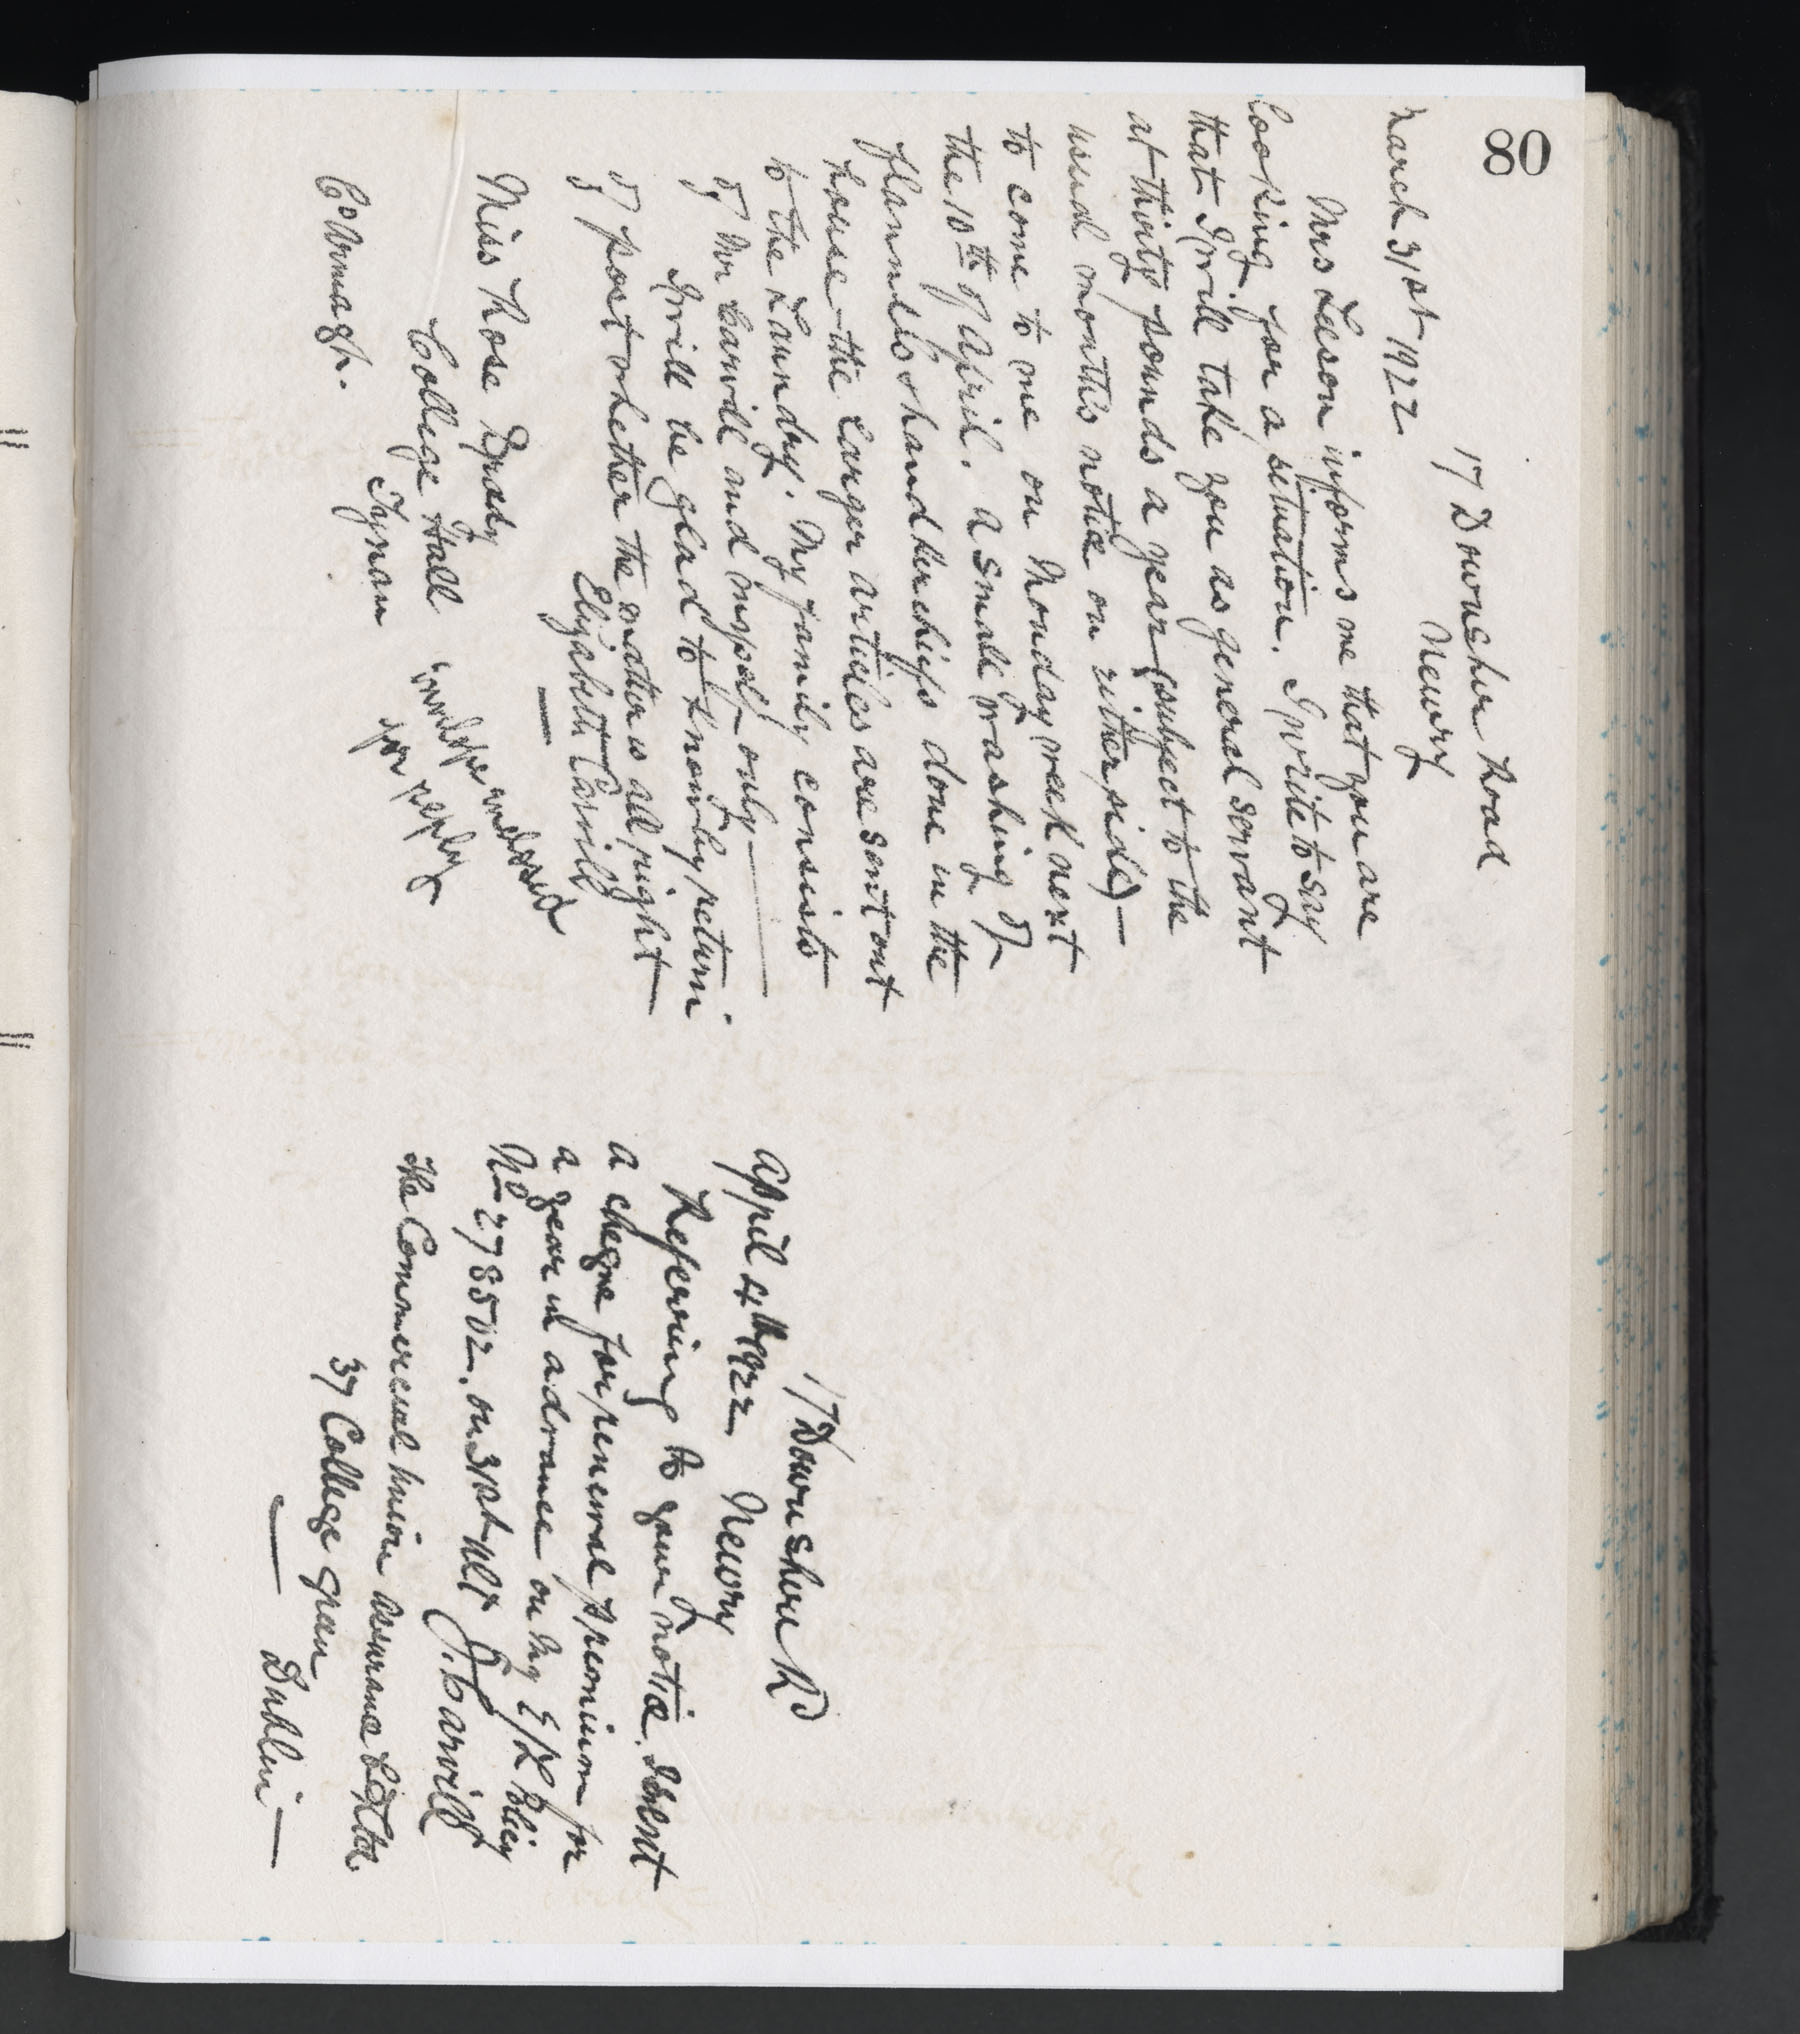 80
17 Downshire Road
Newry
March 31st 1922
Mrs Leeson informs me that you are
looking for a situation. I write to say
that I will take you as general servant
at thirty pounds a year (subject to the
usual months notice on either side) —
to come to me on Monday week next
the 10th of April. A small washing of
flannels & handkerchiefs done in the
house — the larger articles are sent out
to the Laundry. My family consists
of Mr Carvill and myself only —
I will be glad to know by return
of post whether the matter is all right —
Elizabeth Carvill
Miss Rose Grady
College Hall
Tynan
Co Armagh.
envelope enclosed
for reply
17 Downshire Rd
April 4th 1922 Newry
Referring to your notice I sent
a cheque for renewal premium for
a year in advance on my E/L Policy
No 278502. on 31st ult J. Carvill
The Commercial Union Assurance Co Ltd
37 College Green
Dublin —